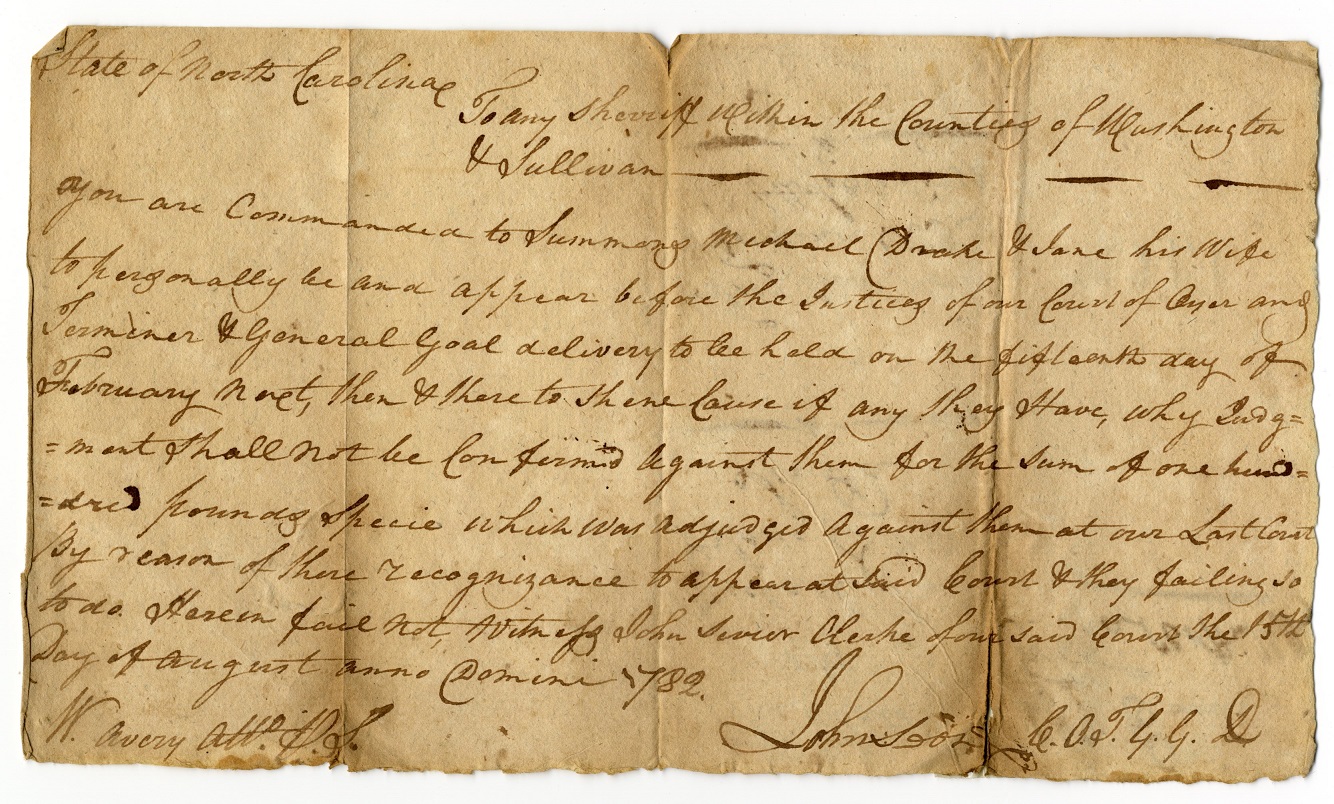 State of North Carolina
To any Sherriff Within the Counties of Washington
& Sullivan
you are Commanded to Summons Michael Drake & Jane his Wife
to personally be and appear before the Justices of our Court of Oyer and
Terminer & General Goal delivery to be held on the fifteenth day of
February next, then & there to shew Cause if any they Have, why Judg=
=ment Shall not be Confermd Against them for the sum of one hund=
=dred pounds Specie which was adjudged Against them at our Last Court
By reason of there recognizance to appear at Said Court & they failing so
to do. Herein fail not, Witness John Sevier Clerke of our said Court the 15th
Day of August anno Domini 1782.
W. Avery Att. P. S.
John Sevier C. O. T. G. G. D